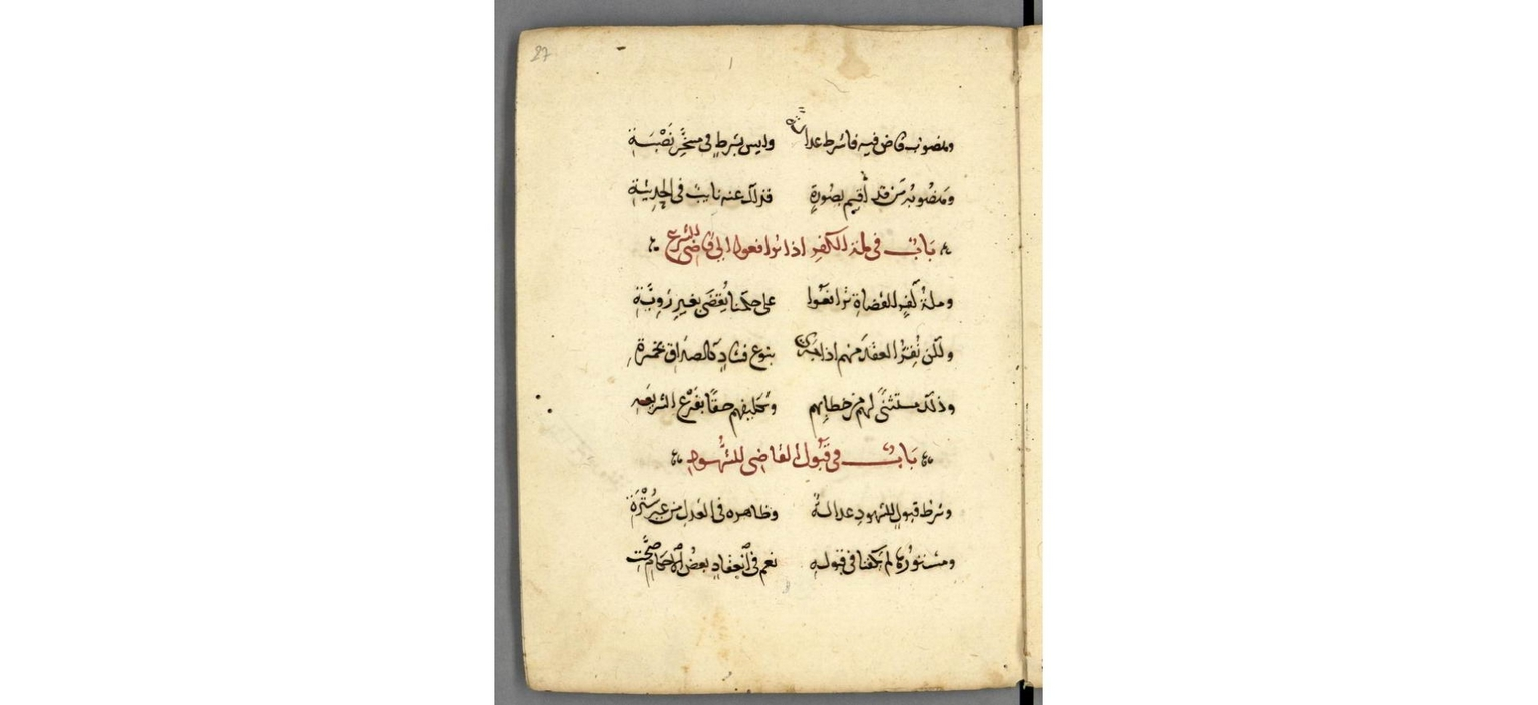 27
ومنصوب قاض فيه فاشرط عدالة وليس بشرط في مسخَّر نَصْبَةِ
ومَنصُوبُه مَن قد أُقيم بصُورةٍ فذلك عنه نايبٌ في الحديثةِ
بَابٌ في ملة الكفر اذا ترافعوا الى قاضي الشرع
وملةُ كُفرٍ للقضاة ترافَعُوا على حكمنا يُقضَى بغيرِ رَوِيَّةِ
ولكن نُقِرُّ العقدَ منهم اذا بنوع فسادٍ كالصداق بخمرةِ
وذلك مستثنًى لهم من خطابهم وتحليفهم حقًا بفَرْع الشريعه
بَابٌ في قَبُولِ القاضي للشُّهود
وشرطُ قبولٍ للشهودِ عدالةٌ وظاهره في العَدل من غير سُتْرَةِ
ومستورُها لم يكفنا في قبولهِ نعم في ٱنعِقادِ بعضُ ٱلاحكام صحَّتِ